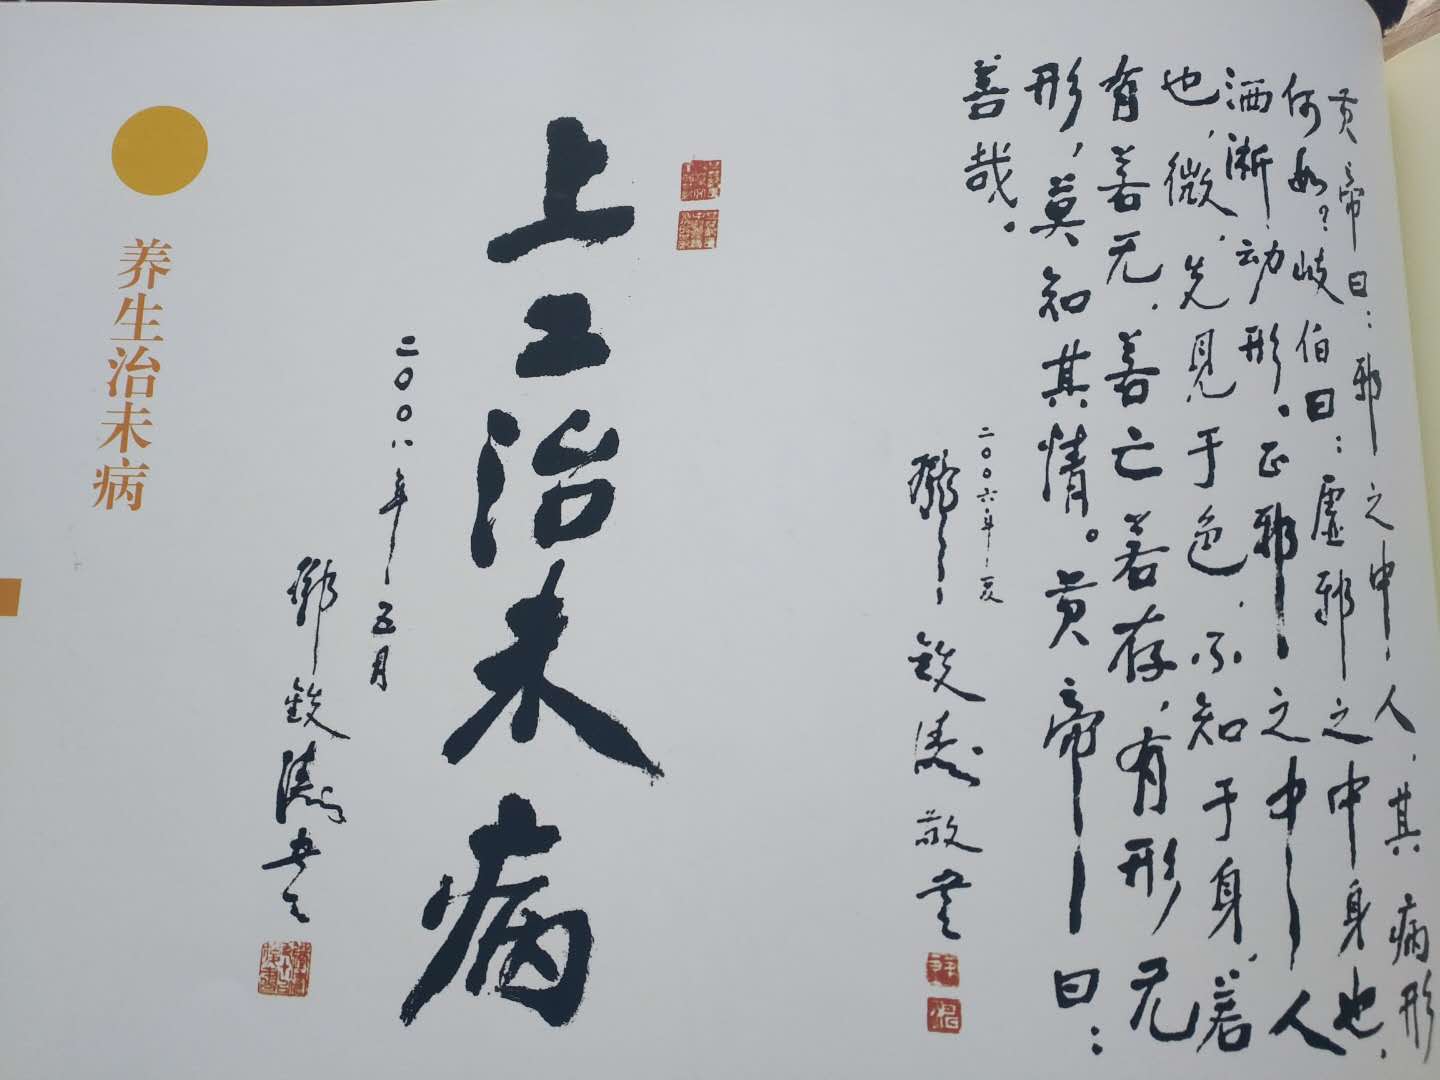 黄帝曰：邪之中人，其病形
何如？岐伯曰：虛邪之中身也，
洒淅动形。正邪之中人
也，微，先见于色，不知于身，若
有若无，若亡若存，有形无
形，莫知其情。黄帝曰：
善哉。
二〇〇六年夏
鄧鐵濤敬书
上工治未病
二〇〇八年五月
鄧鐵濤书
养生治未病